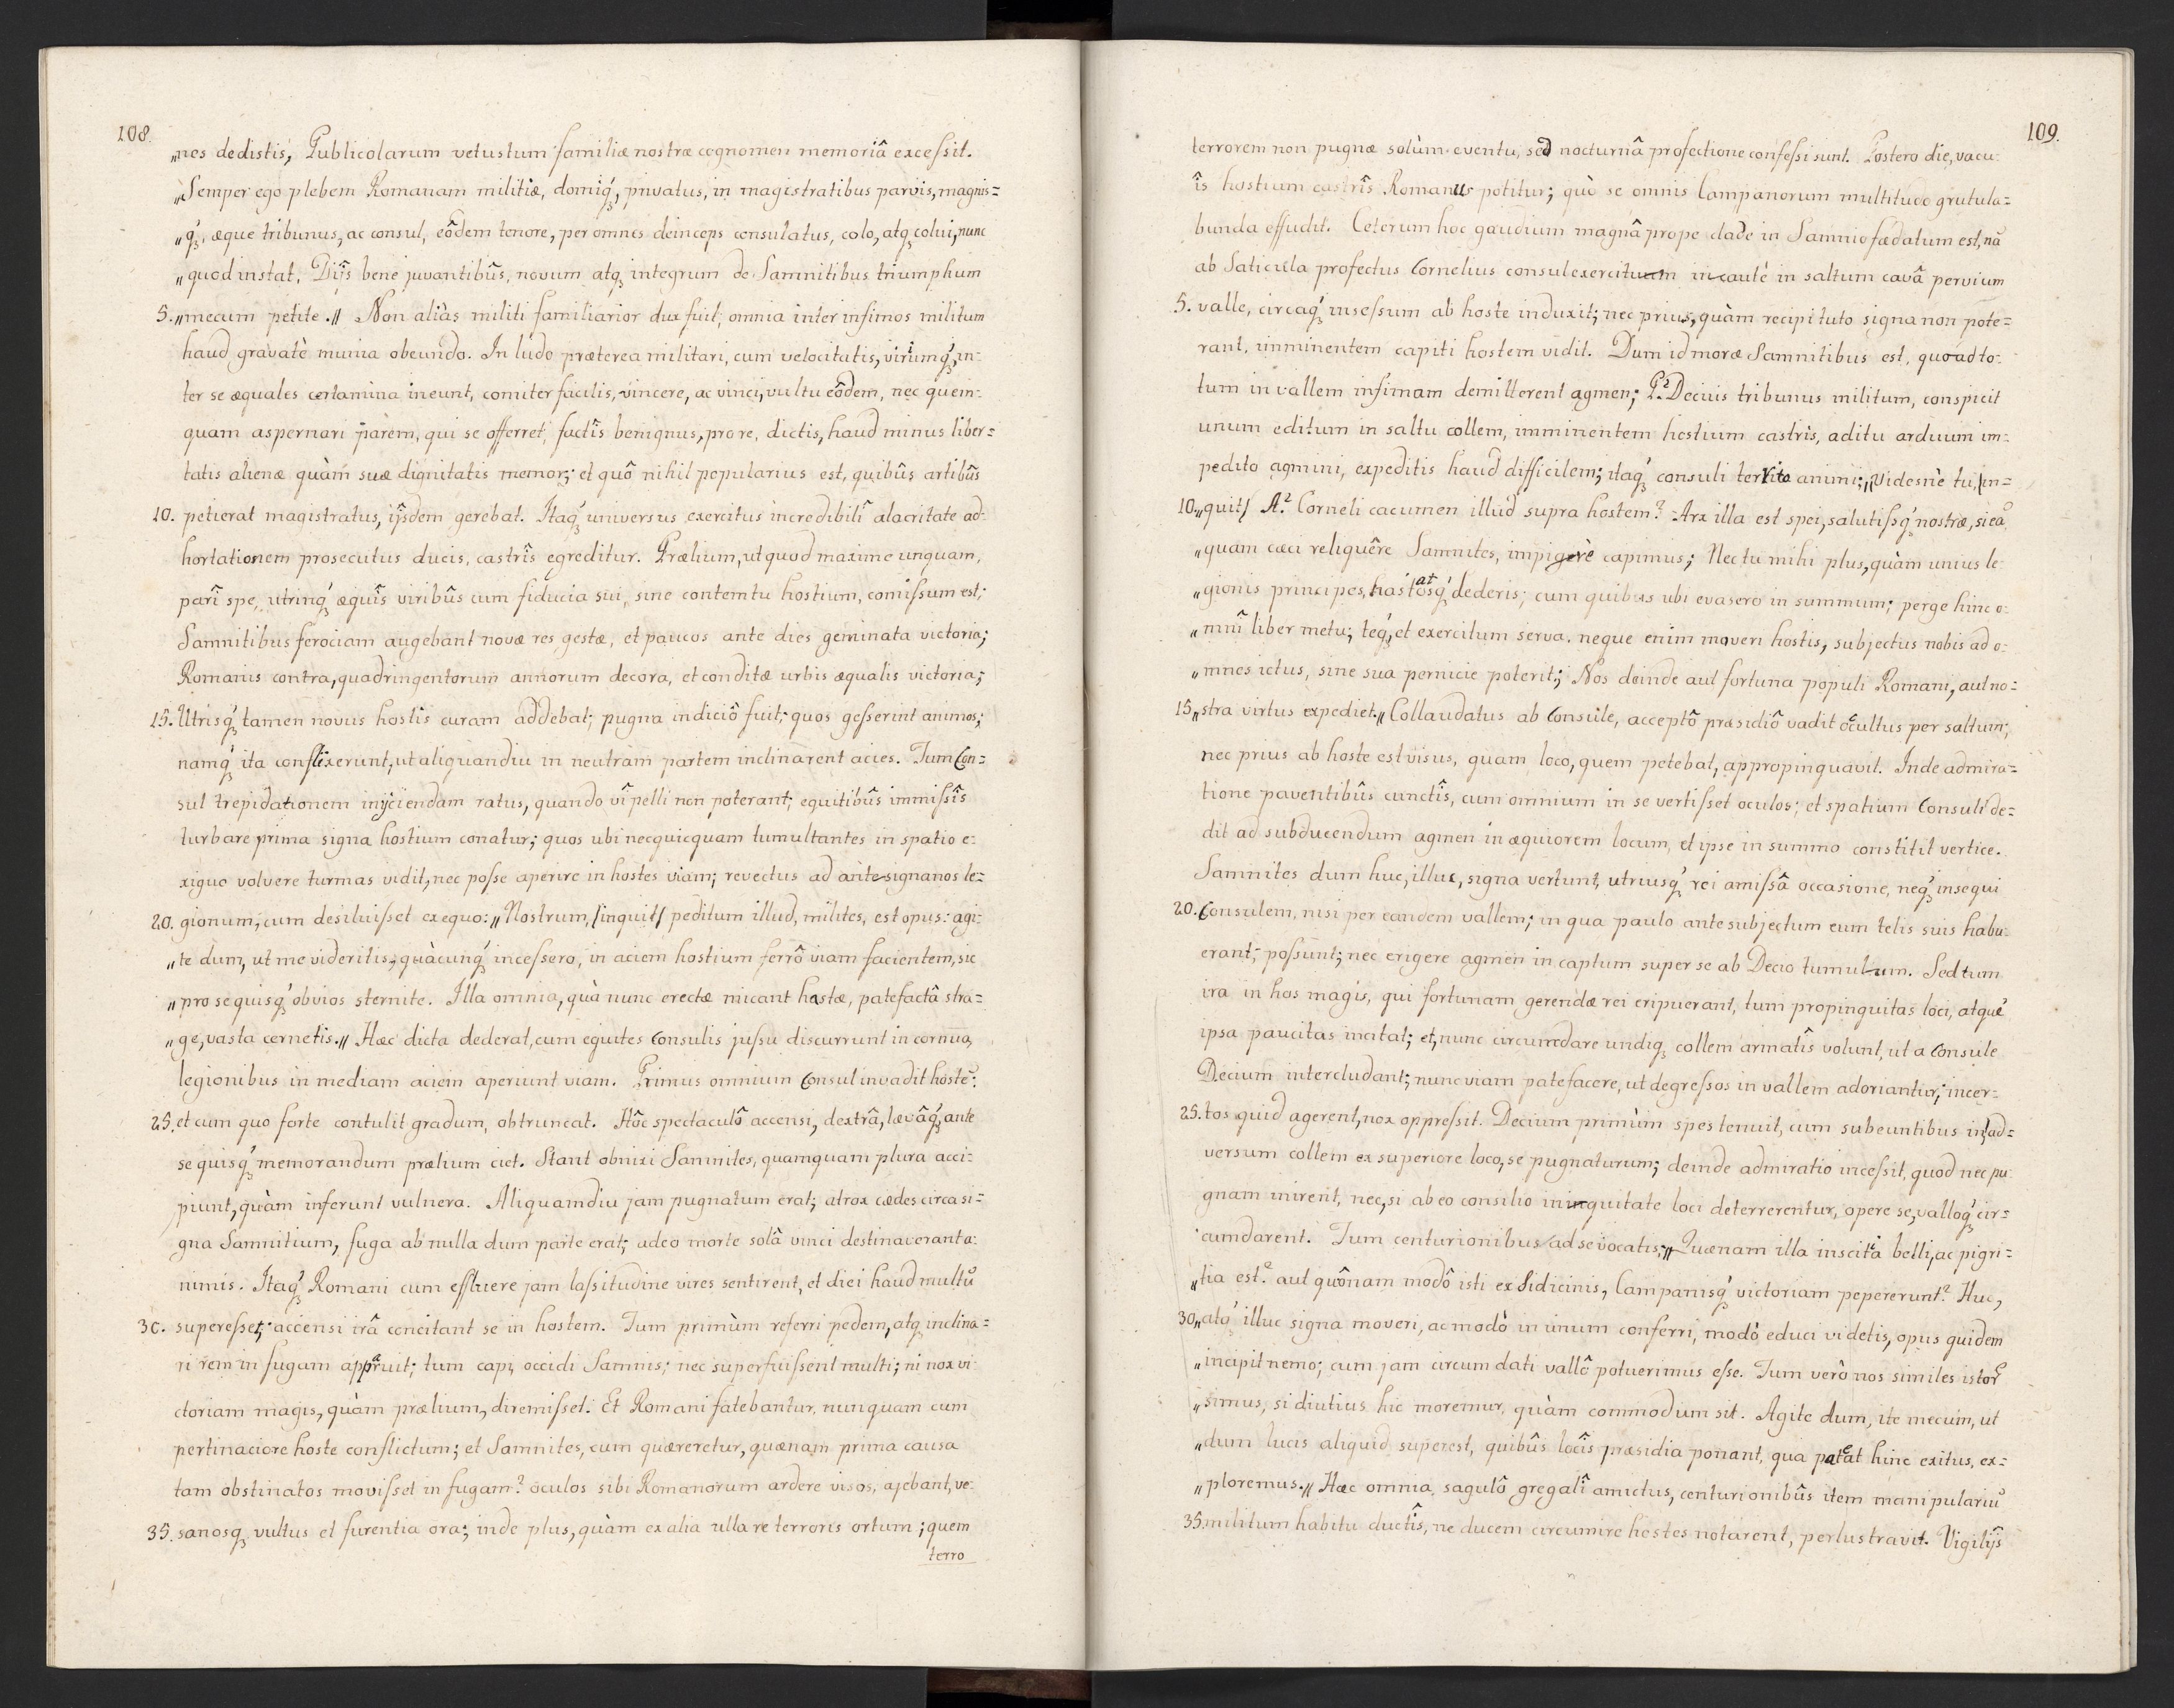 108.
„nes dedistis, Publicolarum vetustum familiæ nostræ cognomen memoriâ excessit.
„Semper ego plebem Romanam militiæ, domiq́ꝫ, privatus, in magistratibus parvis, magnis=
„q́ꝫ, æque tribunus, ac consul, eôdem tenore, per omnes deinceps consulatus, colo, atqꝫ colui, nunc
„quod instat, Dijs bene juvantibûs, novum atqꝫ integrum de Samnitibus triumphum
5. „mecum petite.„ Non aliàs militi familiarior dux fuit, omnia inter infimos militum
haud gravatè munia obeundo. In ludo præterea militari, cum velocitatis, viriumq́ꝫ, in=
ter se æquales certamina ineunt, comiter facilis, vincere, ac vinci, vultu eôdem, nec quem=
quam aspernari parem, qui se offerret, factîs benignus, pro re, dictis, haud minus liber=
tatis alienæ quàm suæ dignitatis memor; et quô nihil popularius est, quibûs artibûs
10. petierat magistratus, ijsdem gerebat. Itaq́ꝫ universus exercitus incredibilî alacritate ad=
hortationem prosecutus ducis, castrîs egreditur. Prælium, ut quod maxime unquam,
parî spe, utrinq́ꝫ æquîs viribûs cum fiducia sui, sine contemtu hostium, comissum est;
Samnitibus ferociam augebant novæ res gestæ, et paucos ante dies geminata victoria;
Romanis contra, quadringentorum annorum decora, et conditæ urbis æqualis victoria;
15. Utrisq́ꝫ tamen novus hostis curam addebat; pugna indiciô fuit; quos gesserint animos;
namq́ꝫ ita conflixerunt, ut aliquandiu in neutram partem inclinarent acies. Tum Con=
sul trepidationem injiciendam ratus, quando vî pelli non poterant; equitibûs immissîs
turbare prima signa hostium conatur; quos ubi necquicquam tumultantes in spatio e=
xiguo volvere turmas vidit, nec posse aperire in hostes viam; revectus ad antesignanos le=
20. gionum, cum desiluisset ex equo: „Nostrum, /inquit/ peditum illud, milites, est opus: agi=
„te dum, ut me videritis, quàcunq́ꝫ incessero, in aciem hostium ferrô viam facientem, sic
„pro se quisq́ꝫ obvios sternite. Illa omnia, quà nunc erectæ micant hastæ, patefactâ stra=
„ge, vasta cernetis.„ Hæc dicta dederat, cum equites Consulis jussu discurrunt in cornua,
legionibus in mediam aciem aperiunt viam. Primus omnium Consul invadit hostē:
25. et cum quo forte contulit gradum, obtruncat. Hôc spectaculô accensi, dextrâ, lævâq́ꝫ ante
se quisq́ꝫ memorandum prælium ciet. Stant obnixi Samnites, quamquam plura acci=
piunt, quàm inferunt vulnera. Aliquamdiu jam pugnatum erat; atrox cædes circa si=
gna Samnitium, fuga ab nulla dum parte erat; adeo morte solâ vinci destinaverant a=
nimis. Itaq́ꝫ Romani cum effluere jam lassitudine vires sentirent, et diei haud multū
30. superesset; accensi irâ concitant se in hostem. Tum primùm referri pedem, atqꝫ inclina=
ri rem in fugam apparuit; tum capi, occidi Samnis; nec superfuissent multi; ni nox vi=
ctoriam magis, quàm prælium, diremisset. Et Romani fatebantur, nunquam cum
pertinaciore hoste conflictum; et Samnites, cum quæreretur, quænam prima causa
tam obstinatos movisset in fugam? oculos sibi Romanorum ardere visos, ajebant, ve=
35. sanosqꝫ vultus et furentia ora; inde plus, quàm ex alia ulla re terroris ortum; quem
terro
109.
terrorem non pugnæ solùm eventu, sed nocturnâ profectione confessi sunt. Postero die, vacu=
îs hostium castrîs Romanus potitur; quò se omnis Campanorum multitudo gratula=
bunda effudit. Ceterum hoc gaudium magnâ prope clade in Samnio fædatum est, nā
ab Saticula profectus Cornelius consul exercitum incautè in saltum cavâ pervium
5. valle, circaq́ꝫ insessum ab hoste induxit; nec prius, quàm recipi tuto signa non pote=
rant, imminentem capiti hostem vidit. Dum id moræ Samnitibus est, quoad to=
tum in vallem infimam demitterent agmen; P? Decius tribunus militum, conspicit
unum editum in saltu collem, imminentem hostium castrìs, aditu arduum im=
pedito agmini, expeditis haud difficilem; itaq́ꝫ consuli territo animi; „Videsnè tu, /in=
10. „quit/ A? Corneli cacumen illud supra hostem? Arx illa est spei, salutisq́ꝫ nostræ, si eā,
„quam cæci reliquêre Samnites, impigrè capimus; Nec tu mihi plus, quàm unius le=
„gionis principes, hastatosq́ꝫ dederis; cum quibus ubi evasero in summum; perge hinc o=
„mnî liber metu; teq́ꝫ, et exercitum serva. neque enim moveri hostis, subjectus nobis ad o=
„mnes ictus, sine sua pernicie poterit; Nos deinde aut fortuna populi Romani, aut no=
15. „stra virtus expediet.„ Collaudatus ab Consule, acceptô præsidiô vadit occultus per saltum;
nec prius ab hoste est visus, quam loco, quem petebat, appropinquavit. Inde admira=
tione paventibûs cunctîs, cum omnium in se vertisset oculos; et spatium Consuli de=
dit ad subducendum agmen in æquiorem locum, et ipse in summo constitit vertice.
Samnites dum huc, illuc, signa vertunt, utriusq́ꝫ rei amissâ occasione, neq́ꝫ insequi
20. Consulem, nisi per eandem vallem; in qua paulo ante subjectum eum telis suis habu=
erant; possunt; nec erigere agmen in captum super se ab Decio tumulum. Sed tum
ira in hos magis, qui fortunam gerendæ rei eripuerant, tum propinquitas loci, atque
ipsa paucitas incitat; et, nunc circumdare undiqꝫ collem armatîs volunt, ut a Consule
Decium intercludant; nunc viam patefacere, ut degressos in vallem adoriantur; incer=
25. tos quid agerent, nox oppressit. Decium primùm spes tenuit, cum subeuntibus in ad=
versum collem ex superiore loco, se pugnaturum; deinde admiratio incessit, quod nec pu=
gnam inirent, nec, si ab eo consilio iniquitate loci deterrerentur, opere se, valloq́ꝫ cir=
cumdarent. Tum centurionibus ad se vocatis; „Quænam illa inscitia belli, ac pigri=
„tia est? aut quônam modô isti ex Sidicinis, Campanisq́ꝫ victoriam pepererunt? Huc,
30. „atq́ꝫ illuc signa moveri, ac modò in unum conferri, modò educi videtis, opus quidem
„incipit nemo; cum jam circumdati vallô potuerimus esse. Tum verò nos similes istorꝫ
„simus, si diutius hic moremur, quàm commodum sit. Agite dum, ite mecum, ut
„dum lucis aliquid superest, quibûs locîs præsidia ponant, qua pateat hinc exitus, ex=
„ploremus.„ Hæc omnia, sagulô gregalî amictus, centurionibûs item manipulariū
35. militum habitu ductîs, ne ducem circumire hostes notarent, perlustravit. Vigilijs